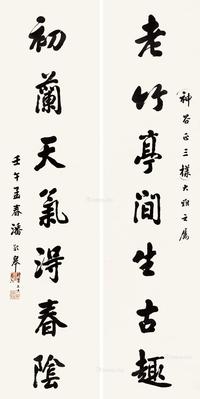 老竹亭間生古趣
神谷正三樣大雅之屬
初蘭天氣淂春陰
壬午孟春潘齡皋